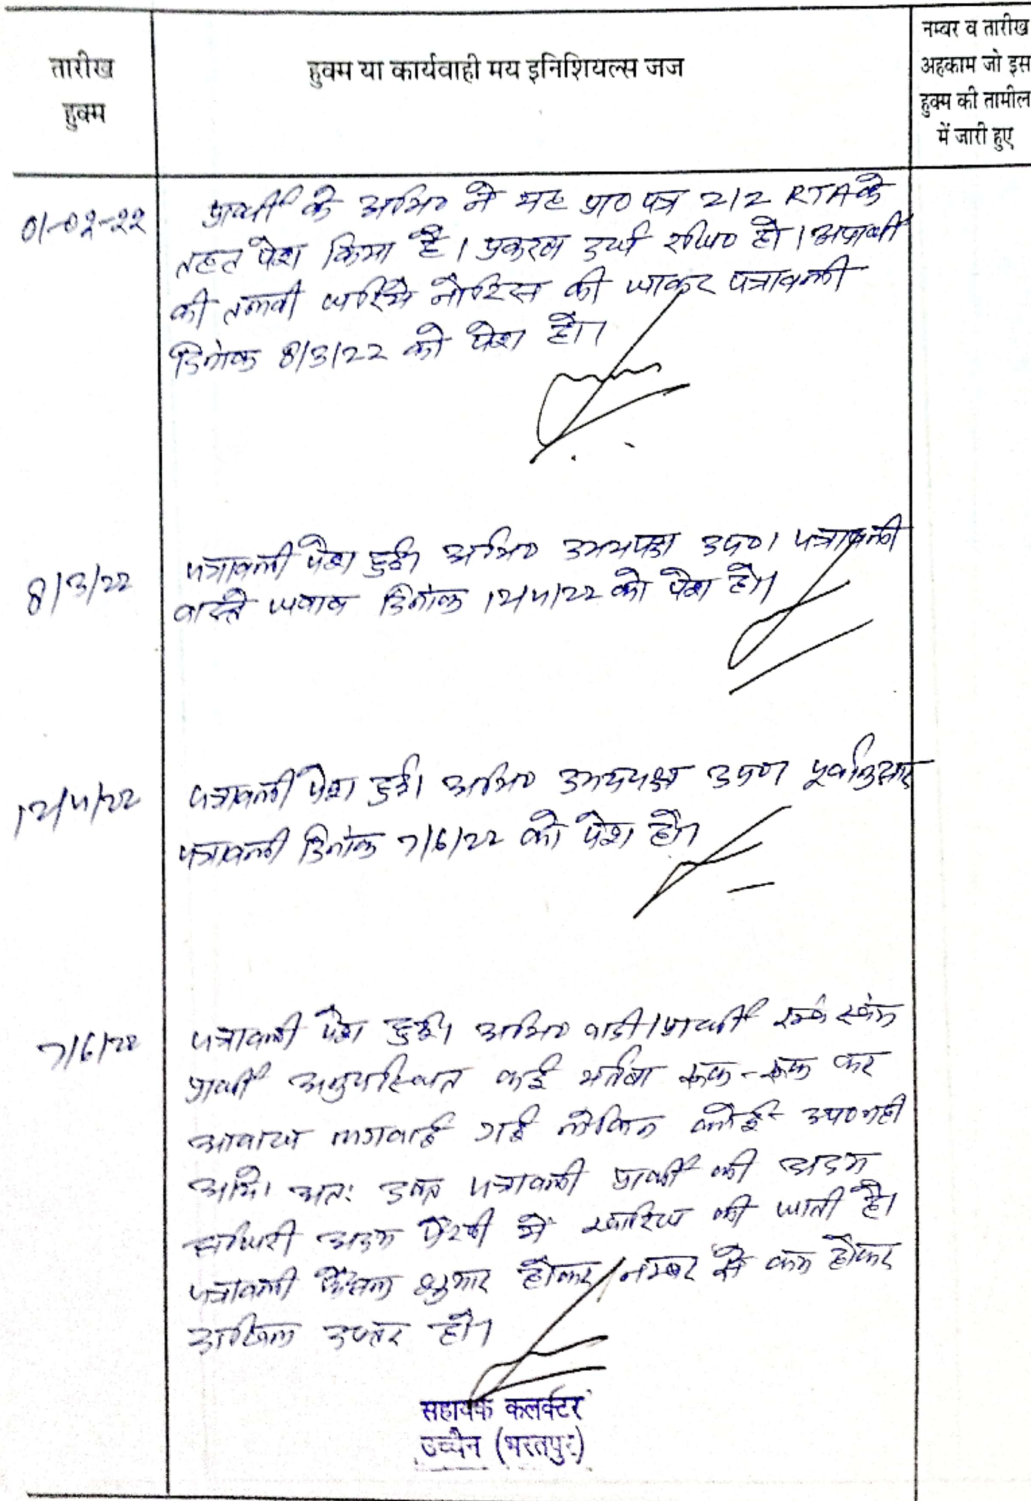 तारीख
हुक्म
हुक्म या कार्यवाही मय इनिशियल्स जज
नम्बर व तारीख
अहकाम जो इस
हुक्म की तामील
में जारी हुए
01-02-22
प्रार्थी के अभि० ने यह प्रा० पत्र 212 RTA के
तहत पेश किया है। प्रकरण दर्ज रजि० हो। अप्रार्थी
की तलबी जरिये नोटिस की जाकर पत्रावली
दिनांक 8/3/22 को पेश हो।
8/3/22
पत्रावली पेश हुई। अभि० उभयपक्ष उप०। पत्रावली
वास्ते जवाब दिनांक 12/4/22 को पेश हो।
12/4/22
पत्रावली पेश हुई। अभि० उभयपक्ष उप० पूर्वानुसार
पत्रावली दिनांक 7/6/22 को पेश हो।
7/6/22
पत्रावली पेश हुई। अभि० वादी/प्रार्थी
प्रार्थी अनुपस्थित कई मर्तबा रूक-रूक कर
आवाज लगवाई गई लेकिन कोई उप० नही
आये। अतः उक्त पत्रावली प्रार्थी की अदम
हाजिरी अदम पैरवी में खारिज की जाती है।
पत्रावली फैसल शुमार होकर नम्बर से कम होकर
दाखिल दफ्तर हो।
सहायक कलक्टर
उच्चैन (भरतपुर)